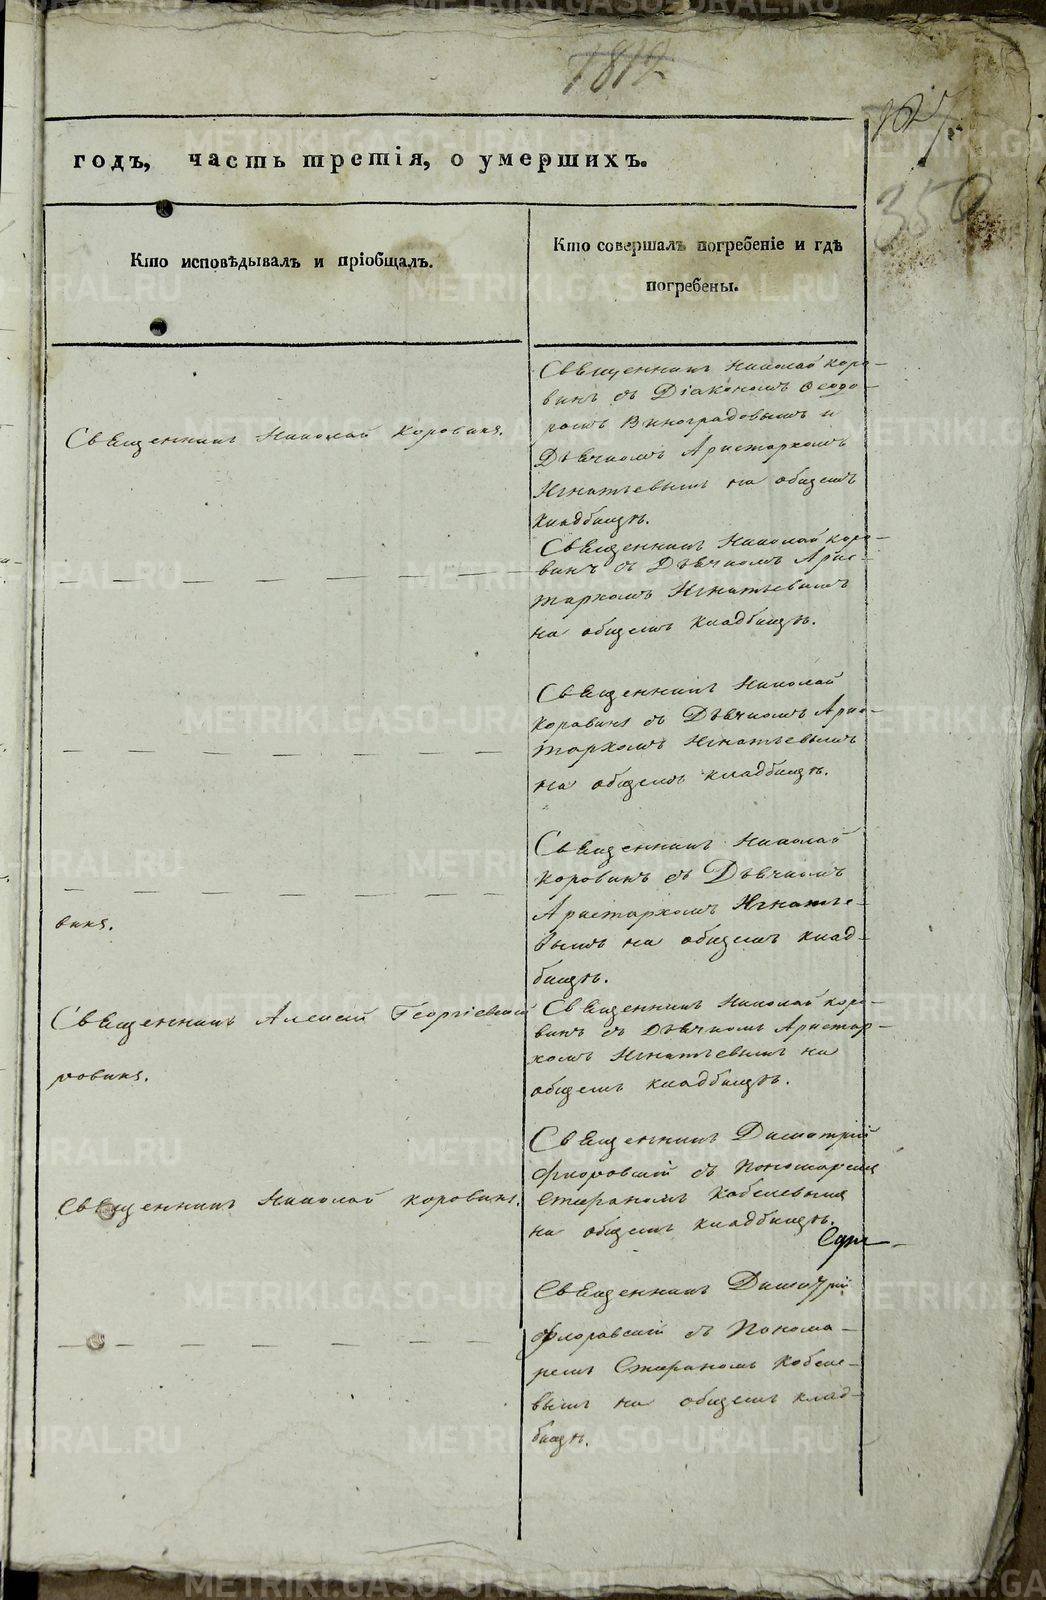 1819
годъ, часть третія, о умершихъ.
350
Кто исповѣдывалъ и пріобщалъ.
Кто совершалъ погребеніе и гдѣ
погребены.
Священникъ Николай Коровинъ.
Священникъ Николай Коро-
винъ съ Діакономъ Феодо-
ромъ Виноградовымъ и
Дьячкомъ Аристархомъ
Игнатьевымъ на общемъ
кладбищѣ.
Священникъ Николай Коро-
винъ съ Дьячкомъ Арис-
тархомъ Игнатьевымъ
на общемъ кладбищѣ.
Священникъ Николай
Коровинъ съ Дьячкомъ Арис-
тархомъ Игнатьевымъ
на общемъ кладбищѣ.
винъ.
Священникъ Николай
Коровинъ съ Дьячкомъ
Аристархомъ Игнатье-
вымъ на общемъ клад-
бищѣ.
Священникъ Алексій Георгіевскій
ровинъ.
Священникъ Николай Коро-
винъ съ Дьячкомъ Аристар-
хомъ Игнатьевымъ на
общемъ кладбищѣ.
Священникъ Николай Коровинъ.
Священникъ Димитрій
Флоровскій съ Пономаремъ
Стефаномъ Кобелевымъ
на общемъ кладбищѣ.
Священникъ Димитрій
Флоровскій съ Понома-
ремъ Стефаномъ Кобеле-
вымъ на общемъ клад-
бищѣ.
METRIKI.GASO-URAL.RU